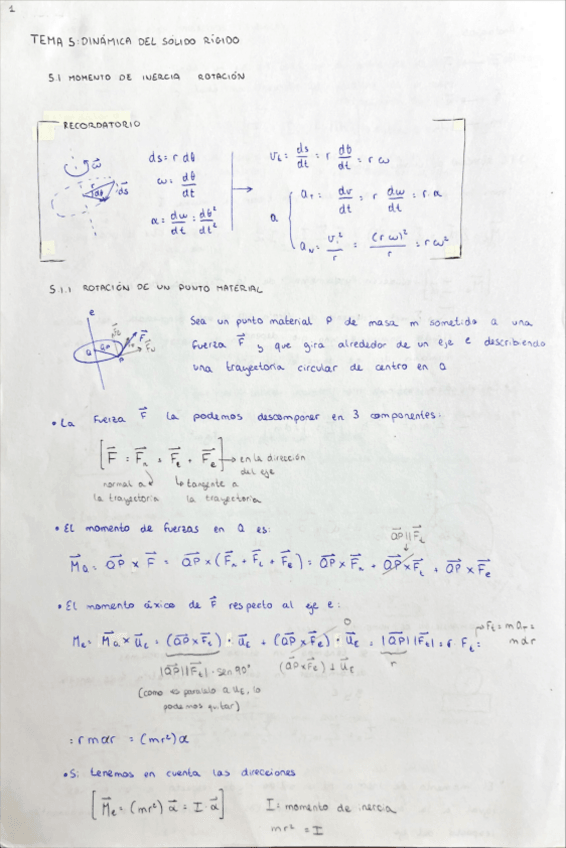 1
TEMA 5: DINÁMICA DEL SÓLIDO RÍGIDO
5.1 MOMENTO DE INERCIA ROTACIÓN
RECORDATORIO
ω⃗
r dθ ds⃗
ds = r dθ
ω = dθ/dt
α = dω/dt = dθ²/dt²
v_t = ds/dt = r dθ/dt = r ω
a { a_T = dv/dt = r dω/dt = r α
a_N = v²/r = (rω)²/r = rω²
5.1.1 ROTACIÓN DE UN PUNTO MATERIAL
e
Sea un punto material P de masa m sometido a una
fuerza F⃗ y que gira alrededor de un eje e describiendo
una trayectoria circular de centro en O
• La fuerza F⃗ la podemos descomponer en 3 componentes:
[F⃗ = F⃗n + F⃗t + F⃗e] → en la dirección
del eje
normal a ↳ tangente a
la trayectoria la trayectoria
• El momento de fuerzas en Q es:
QP⃗ || F⃗t
M⃗Q = QP⃗ × F⃗ = QP⃗ × (F⃗n + F⃗t + F⃗e) = QP⃗ × F⃗n + QP⃗ × F⃗t + QP⃗ × F⃗e
• El momento áxico de F⃗ respecto al eje e:
0
Ft = m aT =
m α r
Me = M⃗Q × u⃗E = (QP⃗ × F⃗t) · u⃗E + (QP⃗ × F⃗e) · u⃗E = |QP⃗| |F⃗t| = r · Ft =
|QP⃗| |F⃗t| · sen 90° (QP⃗ × F⃗e) ⊥ u⃗E r
(como es paralelo a uE, lo
podemos quitar)
= r m α r = (mr²) α
• Si tenemos en cuenta las direcciones
[M⃗e = (mr²) α⃗ = I · α⃗] I = momento de inercia
mr² = I